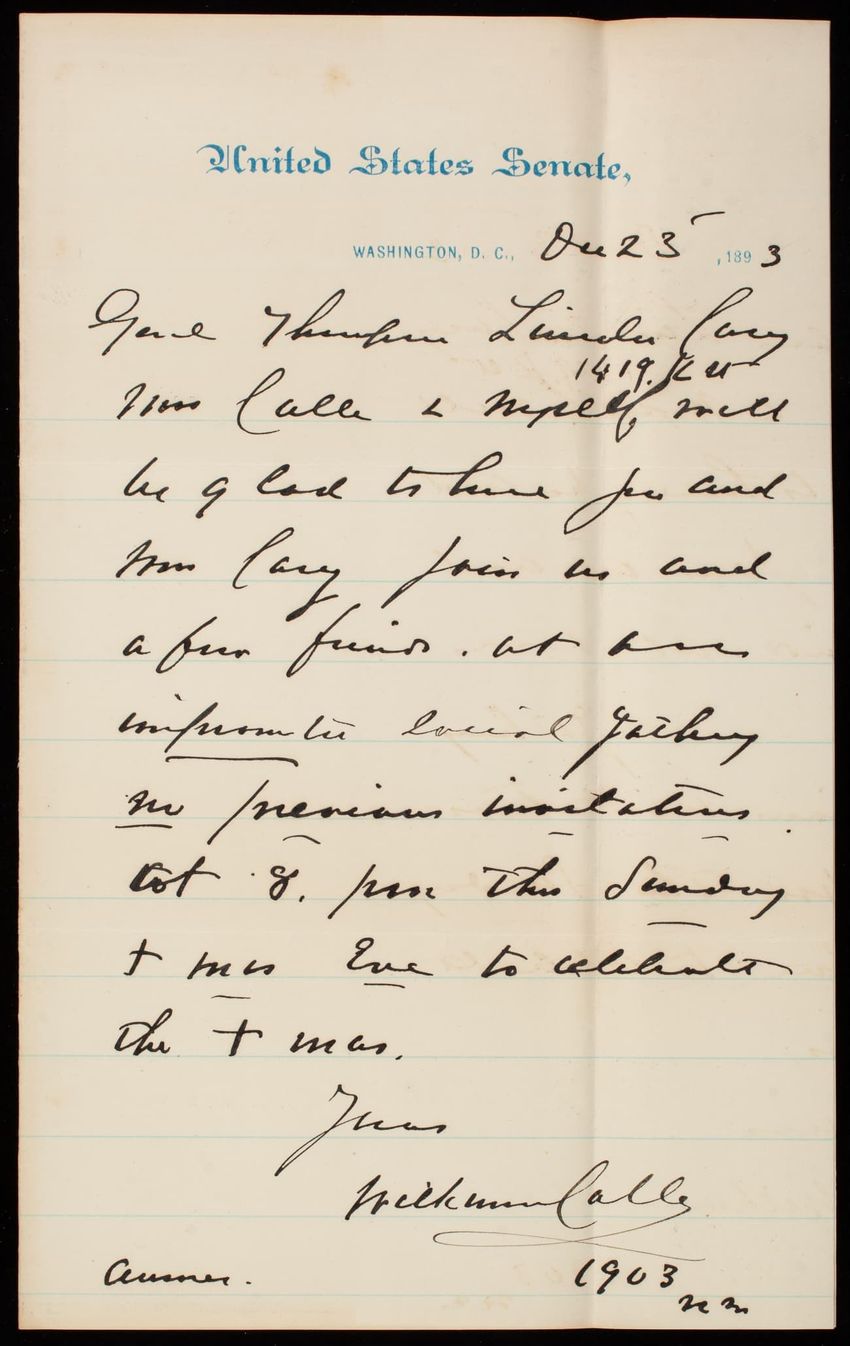 United States Senate,
WASHINGTON, D. C., Dec 23 , 1893
Genl Thomas Lincoln Casey
1419. K St
Mrs Call & myself, will
be glad to have you and
Mrs Casey join us and
a few friends. at an
impromtu social gathering
no previous invitations.
at 8. pm this Sunday
Xmas Eve to celebrate
the Xmas.
Yours
Wilkinson Call
Answer.
1903
N